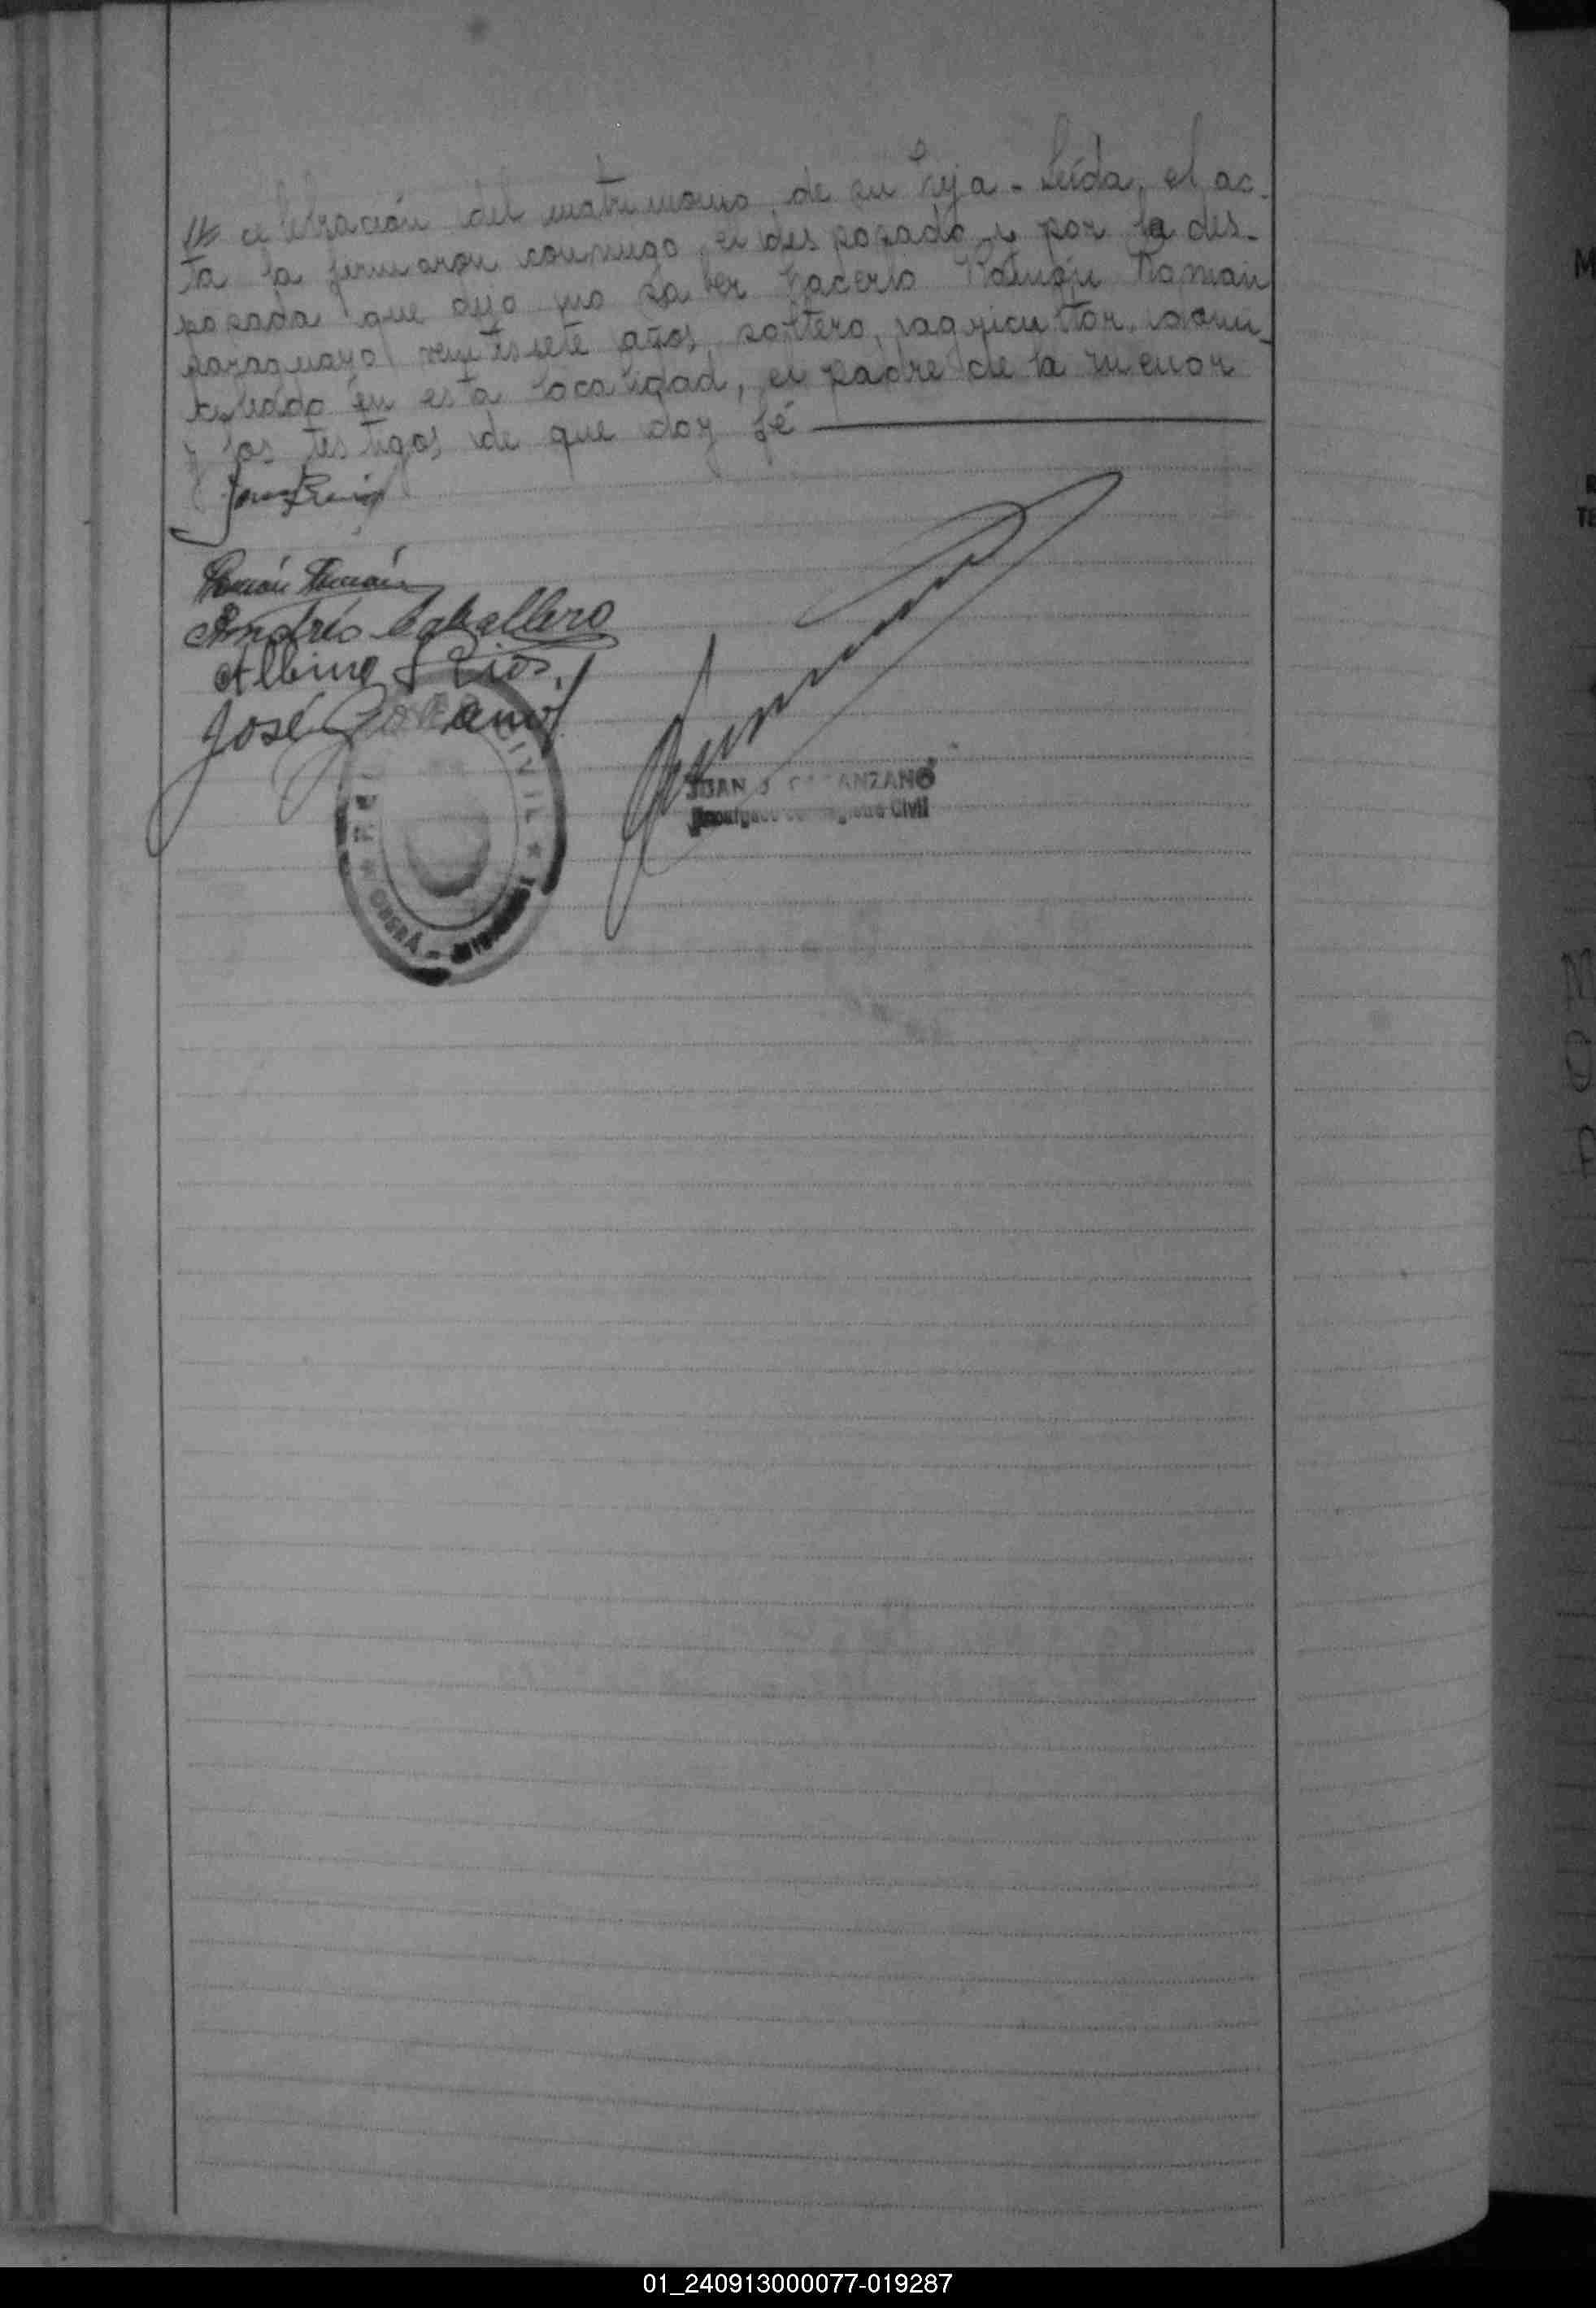 celebración del matrimonio de su hija - Leída, el ac-
ta la firmaron conmigo, el desposado y por la des-
posada que dijo no saber hacerlo Román
paraguayo veintisiete años, soltero, agricultor, domi-
ciliado en esta localidad, el padre de la menor
y los testigos de que doy fé
Román Román
Andrés Caballero
Albino Rios.
José
CIVIL
JUAN ANZANO
Civil
OBERÁ - MISIONES
01_240913000077-019287